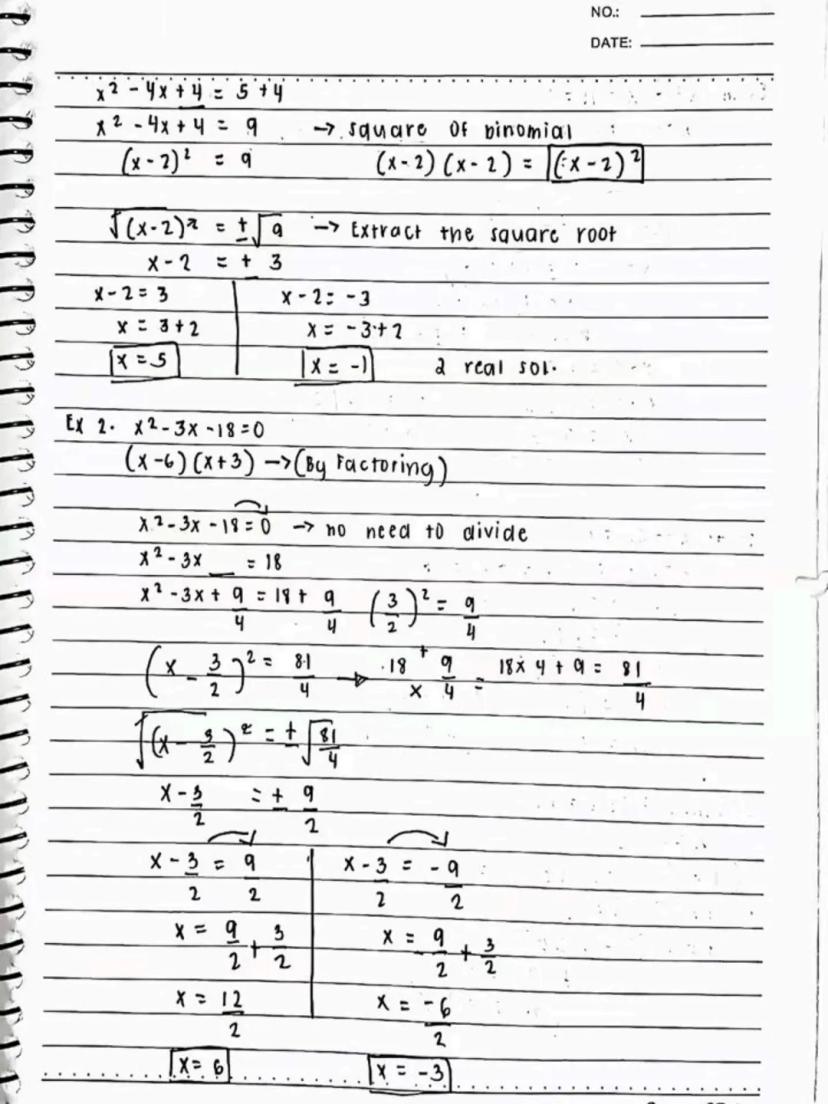 NO.:
DATE:
x² - 4x + 4 = 5 + 4
x² - 4x + 4 = 9 → square of binomial
(x - 2)² = 9 (x - 2) (x - 2) = (x - 2)²
√(x - 2)² = ± √9 → Extract the square root
x - 2 = ± 3
x - 2 = 3 x - 2 = -3
x = 3 + 2 x = -3 + 2
x = 5 x = -1 2 real sol.
Ex 2. x² - 3x - 18 = 0
(x - 6) (x + 3) → (By Factoring)
x² - 3x - 18 = 0 → no need to divide
x² - 3x __ = 18
x² - 3x + 9/4 = 18 + 9/4 (3/2)² = 9/4
(x - 3/2)² = 81/4 → 18 + 9/4 x = 18 x 4 + 9 = 81/4
√(x - 3/2)² = ± √81/4
x - 3/2 = ± 9/2
x - 3/2 = 9/2 x - 3/2 = -9/2
x = 9/2 + 3/2 x = -9/2 + 3/2
x = 12/2 x = -6/2
x = 6 x = -3